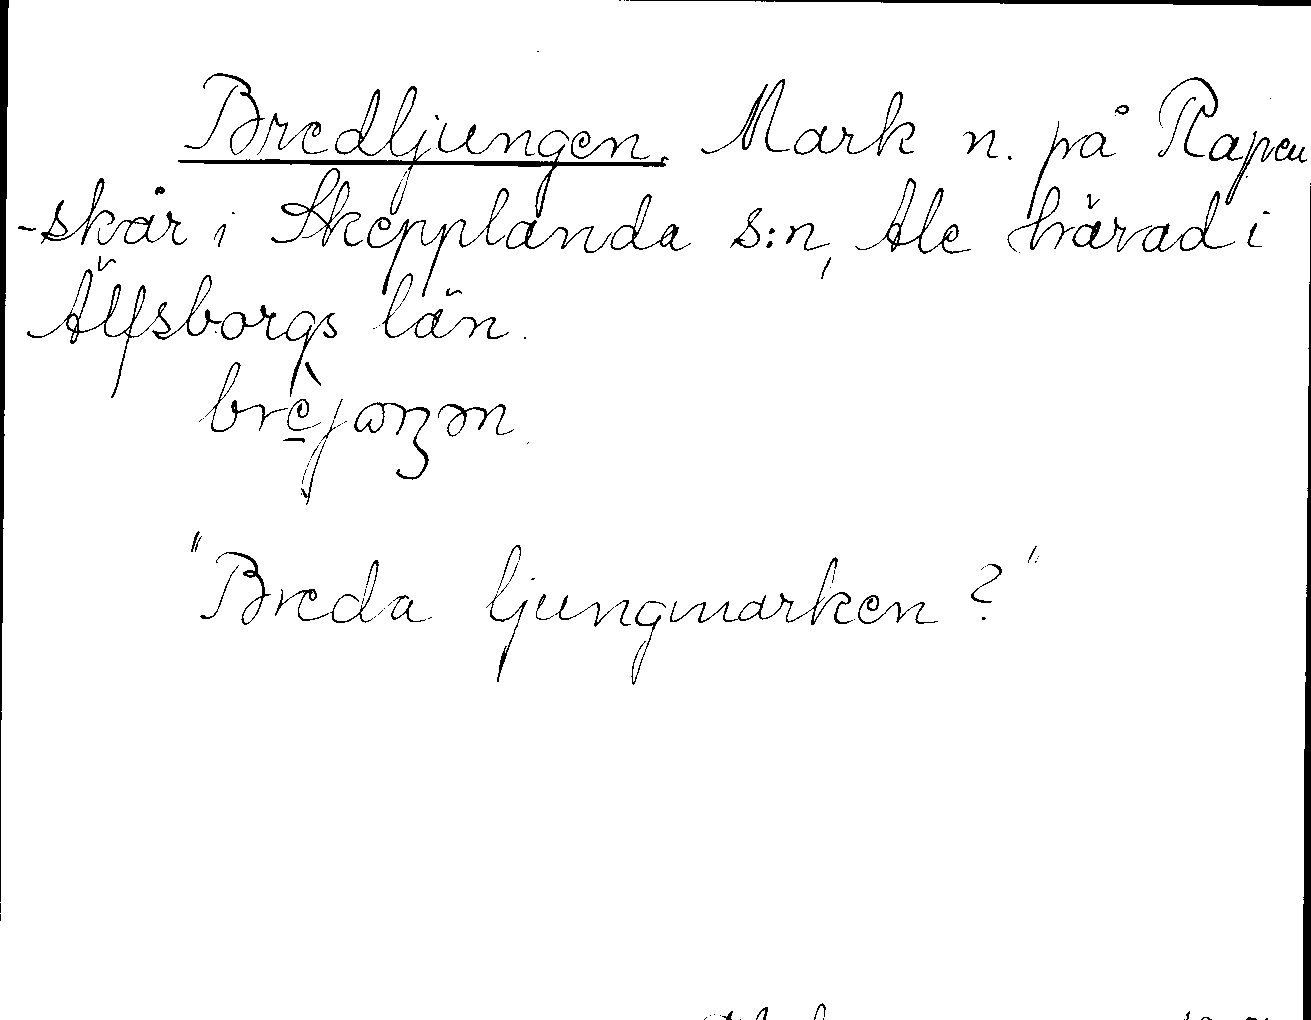 Bredljungen. Mark n. på Rapen
-skår i Skepplanda s:n, Ale härad i
Älfsborgs län.
"Breda ljungmarken?"